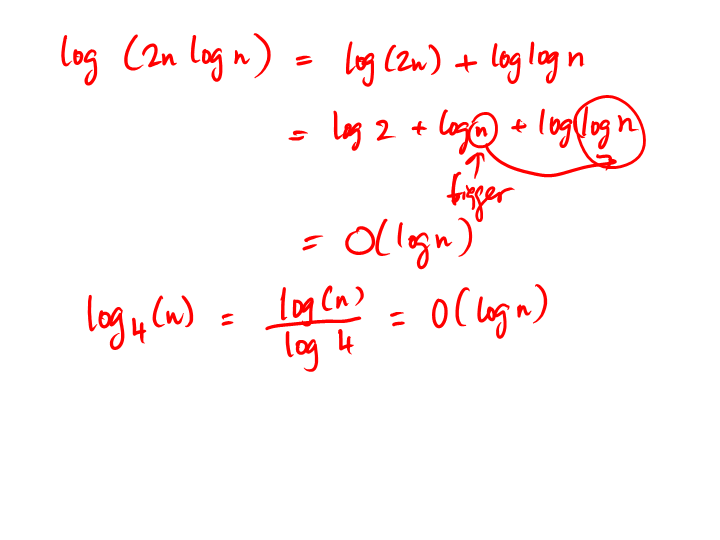 log (2n log n) = log(2n) + log log n
= log 2 + log n + log log n
bigger
= O(log n)
log₄(n) = log(n) / log 4 = O(log n)